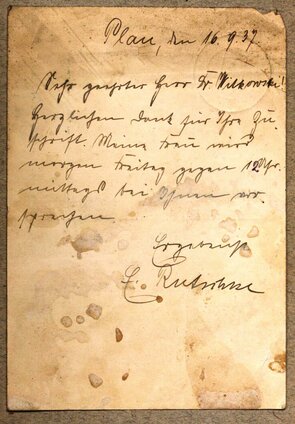 Plau, den 16.9.37.
Sehr geehrter Herr Dr Witkowski!
Herzlichen Dank für Ihre Zu-
schrift. Meine Frau wird
morgen Freitag gegen 12 Uhr.
mittags bei Ihnen vor-
sprechen.
Ergebenst
E.